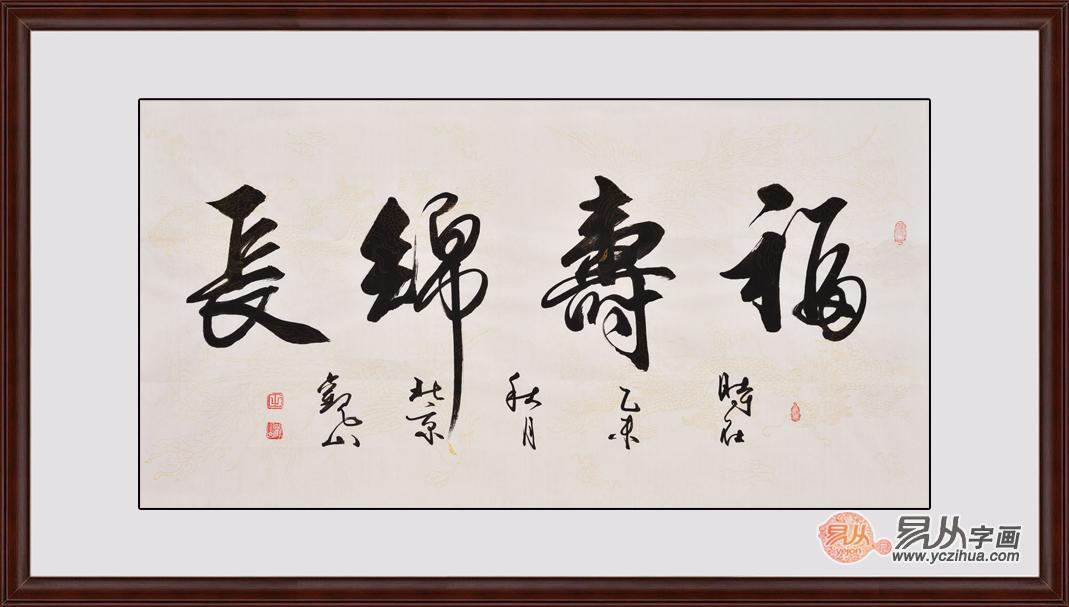 福壽綿長
時在
乙未
秋月
北京
易从
yojon
易从字画
www.yczihua.com